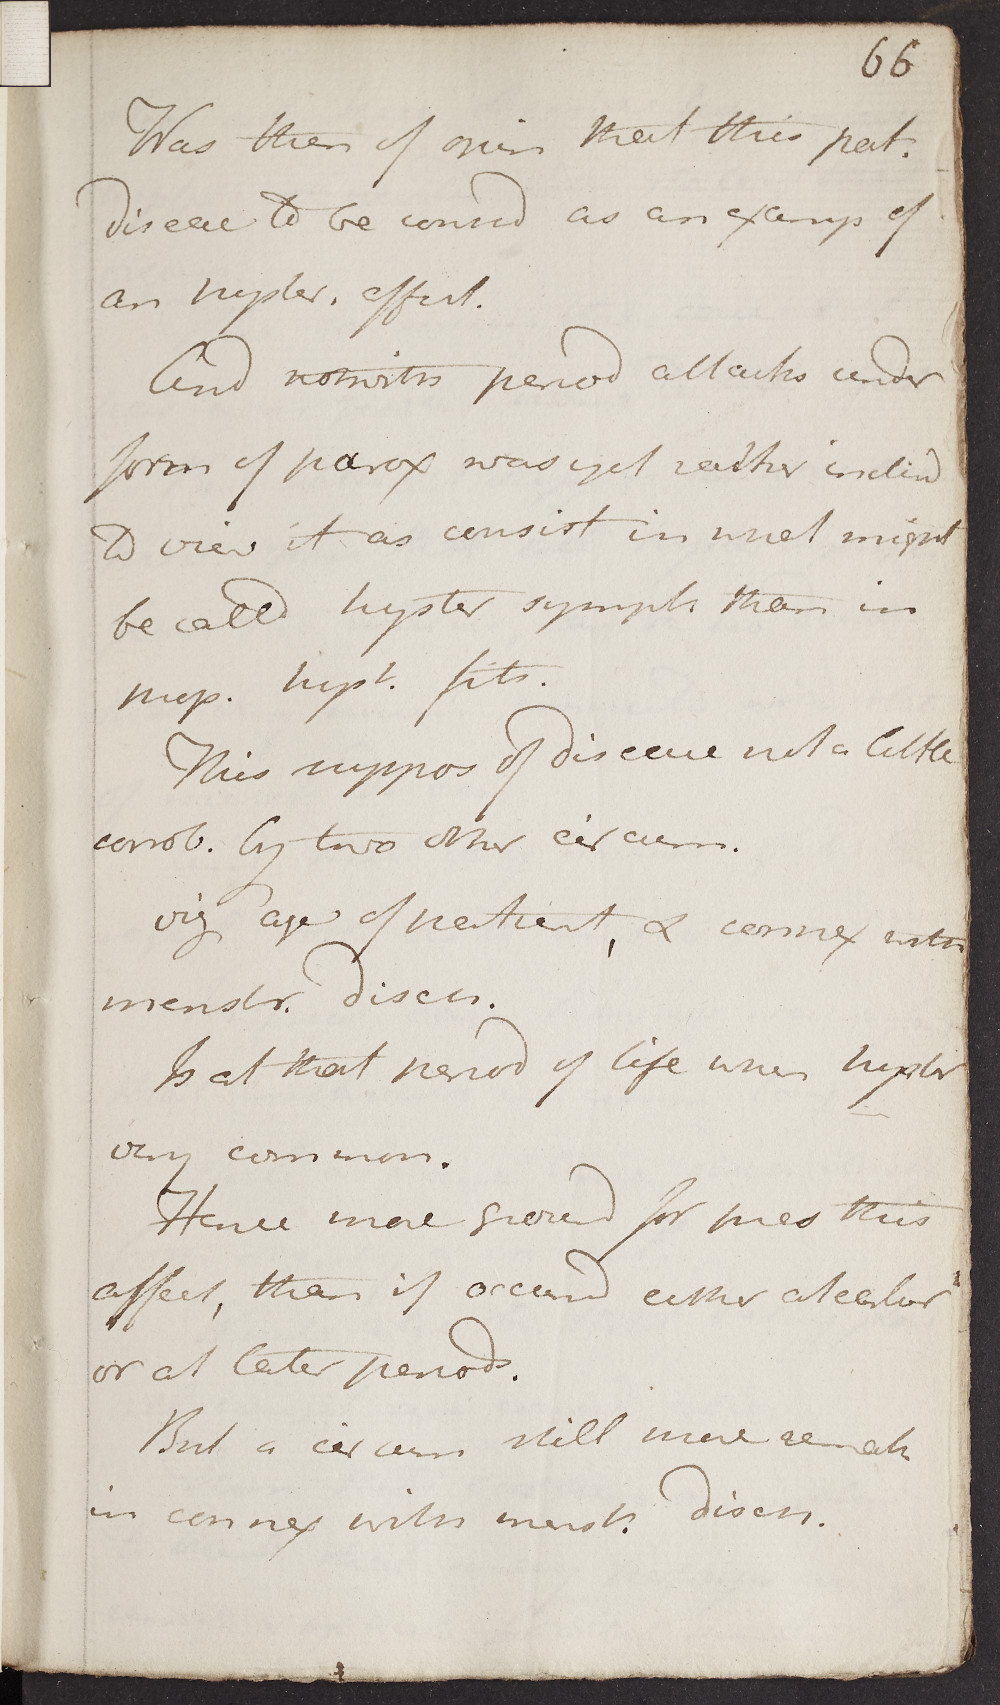 66
Was then of opin that this pat.
disease to be consid as an examp of
an hyster. affect.
And notwith period attacks under
form of parox was yet rather inclin'd
to view it as consist in what might
be called hyster sympt. than in
prop. hyst. fits.
This suppos of disease not a little
corrob. by two other circum.
viz age of patient, & connex with
menstr. disch.
Is at that period of life when hyster
very common.
Hence more ground for pres this
affect, than if occurrd either at earlier
or at later periods.
But a circum still more remark
in connex with menst. disch.